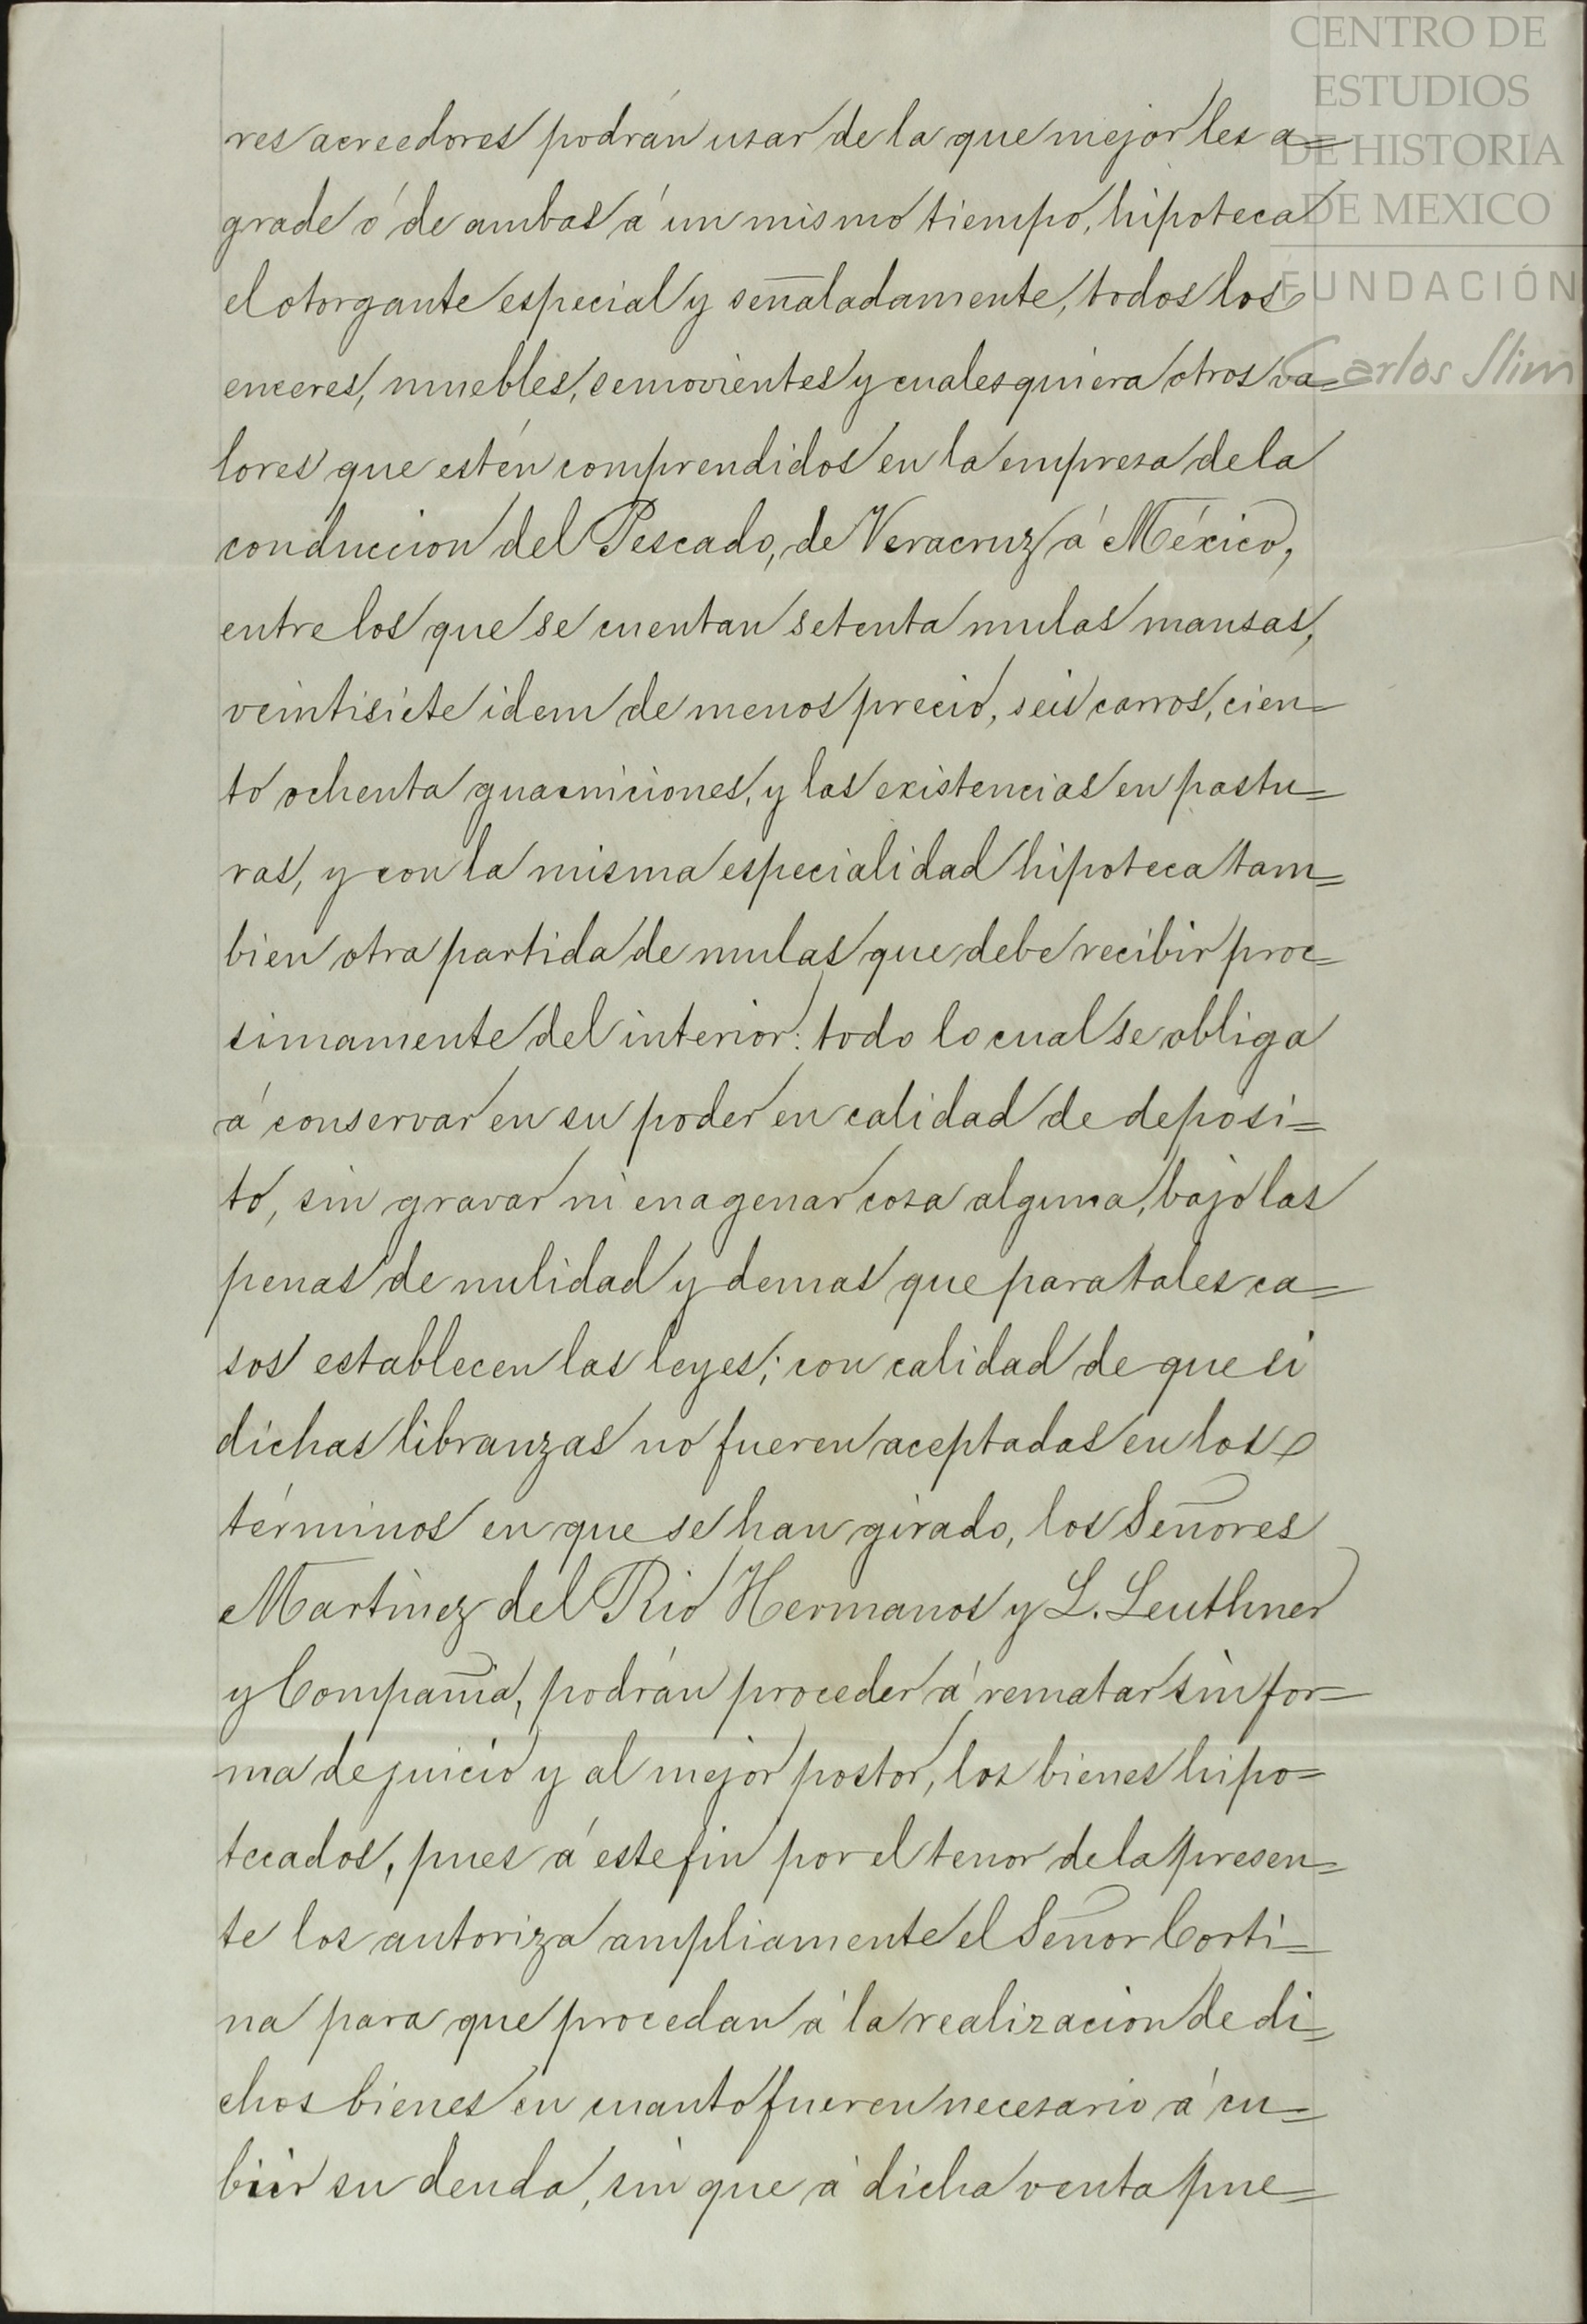 CENTRO DE
ESTUDIOS
DE HISTORIA
DE MEXICO
FUNDACIÓN
Carlos Slim
res acreedores podrán usar de la que mejor les a=
grade ó de ambas á un mismo tiempo, hipoteca
el otorgante especial y señaladamente, todos los
enceres, muebles, semovientes y cualesquiera otros va=
lores que estén comprendidos en la empresa de la
conduccion del Pescado, de Veracruz á México,
entre los que se cuentan setenta mulas mansas,
veintisiete idem de menos precio, seis carros, cien=
to ochenta guarniciones, y las existencias en pastu=
ras, y con la misma especialidad hipoteca tam=
bien otra partida de mulas que debe recibir proc=
simamente del interior: todo lo cual se obliga
á conservar en su poder en calidad de deposi=
to, sin gravar ni enagenar cosa alguna, bajo las
penas de nulidad y demas que para tales ca=
sos establecen las leyes; con calidad de que si
dichas libranzas no fueren aceptadas en los
términos en que se han girado, los Señores
Martinez del Rio Hermanos y L. Leuthner
y Compañia, podrán proceder á rematar sin for=
ma de juicio y al mejor postor, los bienes hipo=
tecados, pues á este fin por el tenor de la presen=
te los autoriza ampliamente el Señor Corti=
na para que procedan á la realizacion de di=
chos bienes en cuanto fueren necesario á cu=
brir su deuda, sin que á dicha venta pue=